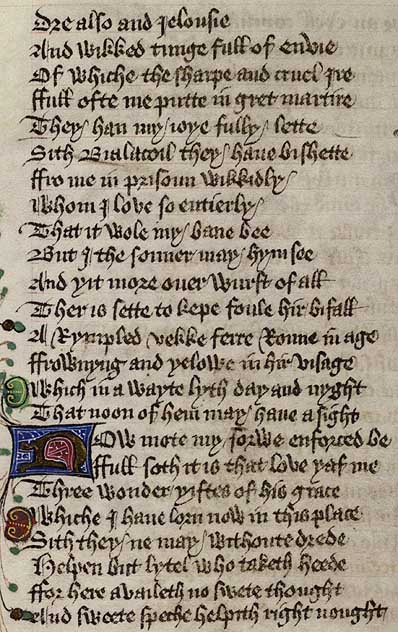 Dre also and Jelousie
And wikked tunge full of envie
Of whiche the sharpe and cruel Jre
Ffull ofte me putte in gret martire
They han my ioye fully lette
Sith Bialacoil they haue bishette
Ffro me in prisoun wikkidly
Whom I love so entierly
That it wole my bane bee
But I the sonner may hym see
And yit more ouer wurst of all
Ther is sette to kepe foule hir bifall
A Rympled vekke ferre Ronne in age
Ffrownyng and yelowe in hir visage
Which in a wayte lyth day and nyght
That noon of hem may haue a sight
Now mote my sorwe enforced be
Ffull soth it is that love yaf me
Three wonder yiftes of his grace
Whiche I haue lorn now in this place
Sith they ne may withoute drede
Helpen but lytel who taketh heede
Ffor here availeth no swete thought
And sweete speche helpith right nought